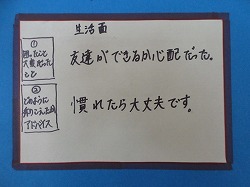 生活面
①
困ったこと
大変だった
こと
友達ができるか心配だった。
②
どのように
乗りこえたか
アドバイス
慣れたら大丈夫です。